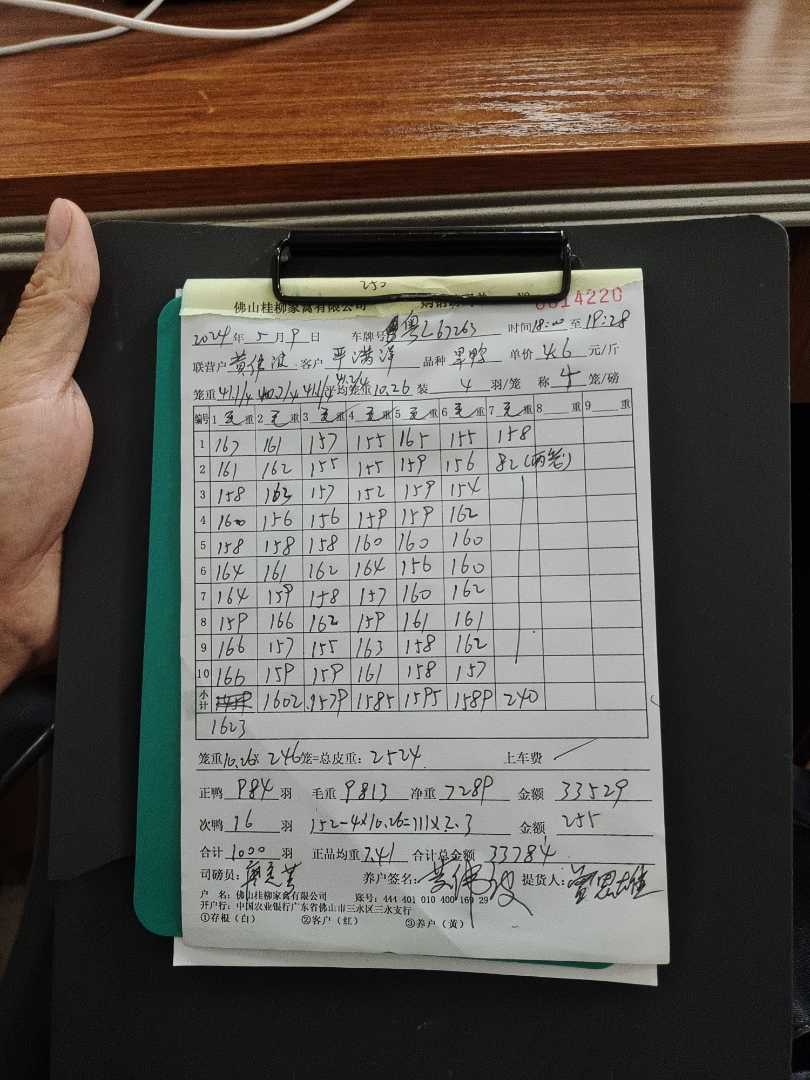 250
佛山桂柳家禽有限公司 0014220
2024年 5月 9日 车牌号 粤L67263 时间18:00至19:28
联营户 黄伟波 客户 严满洋 品种 旱鸭 单价 4.6 元/斤
笼重 41.1/4 40.7/4 41.1/4 41.2/4 平均笼重10.26 装 4 羽/笼 称 4 笼/磅
编号 1 毛 重 2 毛 重 3 毛 重 4 毛 重 5 毛 重 6 毛 重 7 毛 重 8 重 9 重
1 167 161 157 155 165 155 158
2 161 162 155 155 159 156 82(两笼)
3 158 163 157 152 159 154
4 160 156 156 159 159 162
5 158 158 158 160 160 160
6 164 161 162 164 156 160
7 164 159 158 157 160 162
8 159 166 162 159 161 161
9 166 157 155 163 158 162
10 166 159 159 161 158 157
小计 1602 1579 1585 1595 1589 240
1623
笼重10.26× 246笼=总皮重：2524 上车费
正鸭 984 羽 毛重 9813 净重 7289 金额 33529
次鸭 16 羽 152-4×10.26=111×2.3 金额 255
合计 1000 羽 正品均重 7.41 合计总金额 33784
司磅员： 养户签名：黄伟波 提货人：
户 名：佛山桂柳家禽有限公司 账号：444 401 010 400 169 29
开户行：中国农业银行广东省佛山市三水区三水支行
①存根（白） ②客户（红） ③养户（黄）